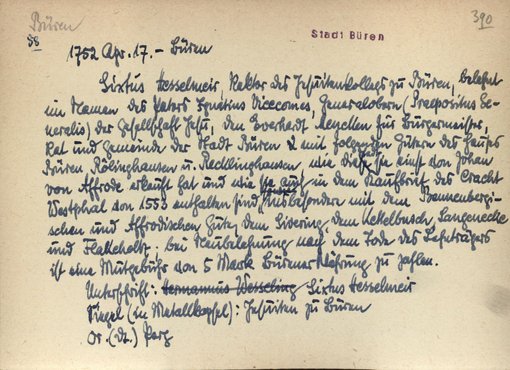 Büren
58
390
Stadt Büren
1752 Apr. 17. - Büren
Sixtus Hesselmeir, Rektor des Jesuitenkollegs zu Büren, belehnt
im Namen des Paters Ignatius Vicecomes, Generalobern (Praepositus Ge-
neralis) der Gesellschaft Jesu, den Everhardt für Bürgermeister,
Rat und Gemeinde der Stadt Büren mit folgenden Gütern des Hauses
Büren, Rölinghausen u. Recklinghausen wie die Stadt sie einst von Johan
von Affrode erkauft hat und wie sie auch in dem Kaufbrief des Cracht
Westphal von 1550 enthalten sind, insbesondere mit dem
schen und Affrodischen Gute, dem Sivering, dem Ketelbusch, Langenecke
und ; bei Neubelehnung nach dem Tode des Lehnträgers
ist eine Mutgebühr von 5 Mark Bürener Währung zu zahlen.
Unterschrift: Hermannus Wesseling Sixtus Hesselmeir
Siegel (in Metallkapsel): Jesuiten zu Büren
Or. (dt.) Perg